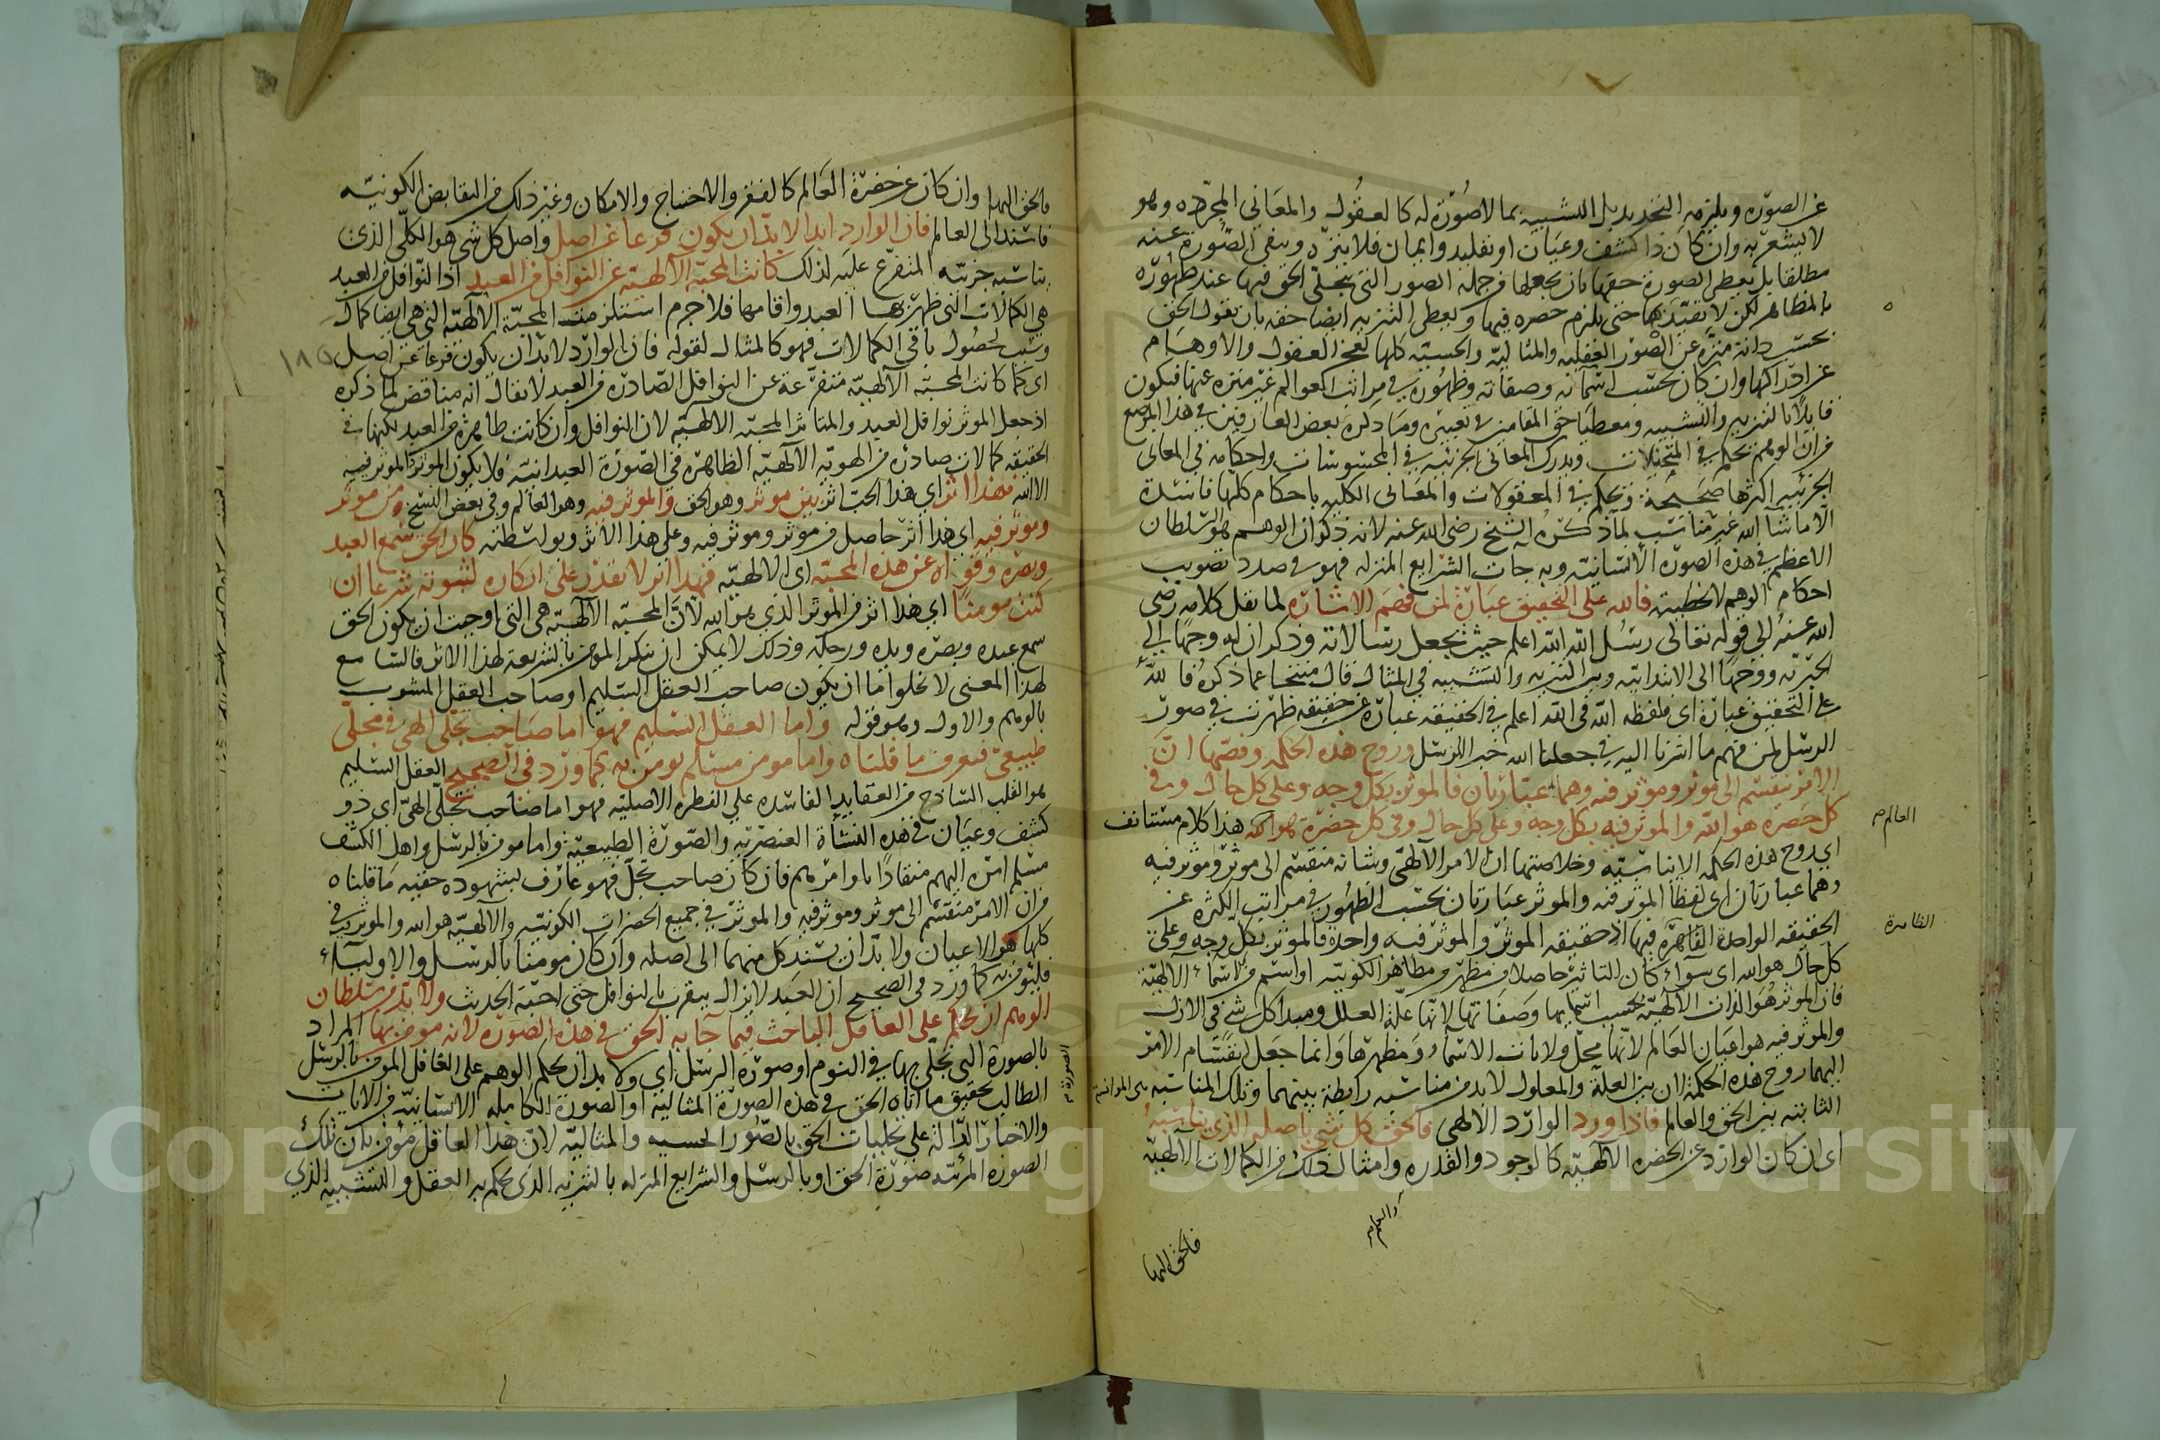 عن الصورة ويلزمه التحديد بل التشبيه بما لا صورة له كالعقول والمعاني المجردة وهو
لا يشعر به وان كان ذا كشف وعيان او تقليد وايمان فلا ينزه وينفي الصورة عنه
مطلقا بل يعطي الصورة حقها بان يجعلها من جملة الصور التي يتجلى الحق فيها عند ظهوره
بالمظاهر لكن لا تقيد بها حتى يلزم حصره فيها ويعطي التنزيه ايضا حقه بان يقول الحق
بحسب ذاته منزه عن الصور العقلية والمثالية والحسية كلها لعجز العقول والاوهام
عن ادراكها وان كان بحسب اسمائه وصفاته وظهوره في مراتب العوالم غير منزه عنها فيكون
قايلا بالتنزيه والتشبيه ومعطيا حق المقامين في تعبيره وما ذكره بعض العارفين في هذا الموضع
من ان الوهم يحكم في المتخيلات ويدرك المعاني الجزئية في المحسوسات واحكامه في المعاني
الجزئية اكثرها صحيحة ويحكم في المعقولات والمعاني الكلية باحكام كلها فاسدة
الا ما شا الله غير مناسب لما ذكره الشيخ رضي الله عنه لانه ذكر ان الوهم هو السلطان
الاعظم في هذه الصورة الانسانية وبه جات الشرايع المنزلة فهو في صدد تصويب
احكام الوهم لا تخطيته فالله على التحقيق عبارة لمن فهم الاشارة لما نقل كلامه رضي
الله عنه الى قوله تعالى رسل الله الله اعلم حيث يجعل رسالاته وذكر ان له وجها الى
الخبرية ووجها الى الابتدائية وبين التنزيه والتشبيه في المثال قال منتجا عما ذكره فالله
على التحقيق عبارة اي فلفظة الله في الله اعلم في الحقيقة عبارة عن حقيقة ظهرت في صور
الرسل لمن فهم ما اشرنا اليه في جعلنا الله خبر الرسل وروح هذه الحكمة وفصها ان
الامر ينقسم الى موثر وموثر فيه وهما عبارتان فالموثر بكل وجه وعلى كل حال وفي
كل حضرة هو الله والموثر فيه بكل وجه وعلى كل حال وفي كل حضرة هو الله هذا كلام مستانف
العالم
اي روح هذه الحكمة الايناسية وخلاصتها ان الامر الالهي وشانه منقسم الى موثر وموثر فيه
وهما عبارتان اي لفظا الموثر فيه والموثر عبارتان بحسب الظهور في مراتب الكثرة عن
الحقيقة الواحدة القاهرة فيها اذ حقيقة الموثر والموثر فيه واحدة فالموثر بكل وجه وعلى
الظاهرة
كل حال هو الله اي سوآء كان التاثير حاصلا من مظهر من مظاهر الكونية او اسم من الاسماء الالهية
فان الموثر هو الذات الالهية بحسب اسمايها وصفاتها لانها علة العلل ومبدا كل شي في الازل
والموثر فيه هو اعيان العالم لانها محل ولايات الاسماء ومظهرها وانما جعل انقسام الامر
اليهما روح هذه الحكمة لان بين العلة والمعلول لابد من مناسبة رابطة بينهما وتلك المناسبة هي الموانسة
الثابتة بين الحق والعالم فاذا ورد الوارد الالهي فالحق كل شي باصله الذي يناسبه
اي ان كان الوارد عن الحضرة الالهية كالوجود والقدرة وامثال ذلك من الكمالات الالهية
والعلم
فالحق اليها
فالحق اليها وان كان عن حضرة العالم كالفقر والاحتياج والامكان وغير ذلك من النقايص الكونية
فاسند الى العالم فان الوارد ابدا لابد ان يكون فرعا عن اصل واصل كل شي هو الكلي الذي
يناسبه جزئيه المتفرع عليه لذلك كانت المحبة الالهية عن النوافل من العبد اذ النوافل من العبد
هي الكمالات التي ظهر بها العبد واقامها فلا جرم استلزمت المحبة الالهية التي هي ايضا كمال
وسبب لحصول باقي الكمالات فهو كالمثال لقوله فان الوارد لابد ان يكون فرعا عن اصل
١٨٥
اي كما كانت المحبة الالهية متفرعة عن النوافل الصادرة من العبد لا يقال انه مناقض لما ذكره
اذ جعل الموثر نوافل العبد والمتاثر المحبة الالهية لان النوافل وان كانت ظاهرة من العبد لكنها في
الحقيقة كمالات صادرة من الهوية الالهية الظاهرة في الصورة العبدانية فلا يكون الموثر والموثر فيه
الا الله فهذا اثر اي هذا الحب اثر بين موثر وهو الحق والموثر فيه وهو العالم وفي بعض النسخ من موثر
وموثر فيه اي هذا اثر حاصل من موثر وموثر فيه وعلى هذا الاثر وبواسطته كان الحق سمع العبد
وبصره وقواه عن هذه المحبة اي الالهية فهذا اثر لا تقدر على انكاره لثبوته شرعا ان
كنت مومنا اي هذا اثر من الموثر الذي هو الله لان المحبة الالهية هي التي اوجبت ان يكون الحق
سمع عبده وبصره ويده ورجله وذلك لا يمكن ان ينكر المومن بالشريعة لهذا الاثر فالسامع
لهذا المعنى لا يخلوا اما ان يكون صاحب العقل السليم او صاحب العقل المشوب
بالوهم والاول وهو قوله واما العقل السليم فهو اما صاحب تجلي الهي في مجلى
طبيعي فيعرف ما قلناه واما مومن مسلم يومن به كما ورد في الصحيح العقل السليم
هو القلب الساذج من العقايد الفاسدة على الفطرة الاصلية فهو اما صاحب تجلي الهي اي ذو
كشف وعيان في هذه النشأة العنصرية والصورة الطبيعية واما مومن بالرسل واهل الكشف
مسلم امره اليهم منقادا باوامرهم فان كان صاحب تجل فهو عارف لشهوده حقية ما قلناه
من ان الامر منقسم الى موثر وموثر فيه والموثر في جميع الحضرات الكونية والالهية هو الله والموثر فيه في
كلها هو الاعيان ولابد ان يسند كل منهما الى اصله وان كان مومنا بالرسل والاوليآء
فليومن به كما ورد في الصحيح ان العبد لا يزال يتقرب بالنوافل حتى احبه الحديث ولابد من سلطان
الوهم ان يحكم على العاقل الباحث فيما جا به الحق في هذه الصورة لانه مومن بها المراد
بالصورة التي تجلى بها في النوم او صورة الرسل اي ولابد ان يحكم الوهم على العاقل المومن بالرسل
الصورة
الطالب تحقيق ما اتاه الحق في هذه الصورة المثالية او الصورة الكاملة الانسانية من الايات
والاخبار الدالة على تجليات الحق بالصور الحسية والمثالية لان هذا العاقل مومن بان تلك
الصورة المرئية صورة الحق او بالرسل والشرايع المنزلة بالتنزيه الذي يحكم به العقل والتشبيه الذي
Copyright © King Saud University